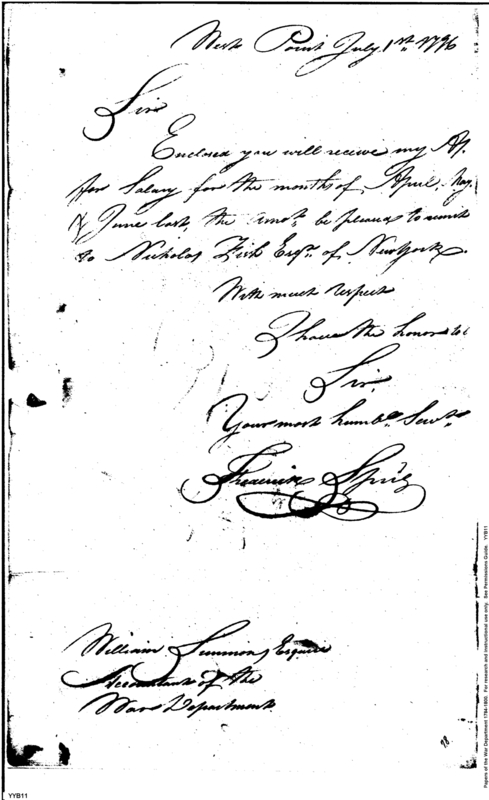 West Point July 1st. 1796
Sir
Enclosed you will receive my Ap.
for Salary for the months of April, May,
& June last, the amot. be pleased to remit
to Nicholas Fish Esqr. of New York.
With much respect
I have the honor to be
Sir.
Your most humble. Servt.
Frederick Spiig
William Simmons Esquire
Accountant of the
War Department.
YYB11
Papers of the War Department 1784-1800. For research and instructional use only. See Permissions Guide. YYB11